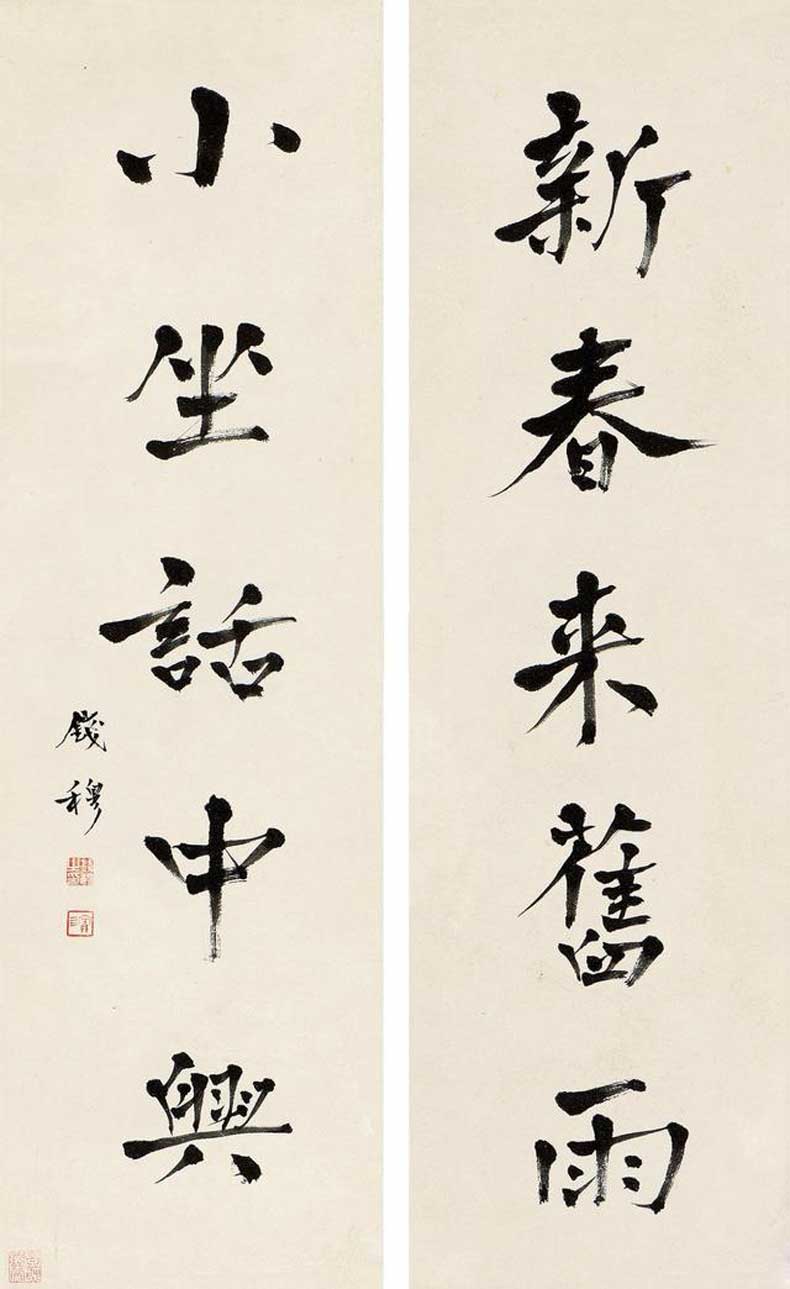 新春来舊雨
小坐話中興
錢穆